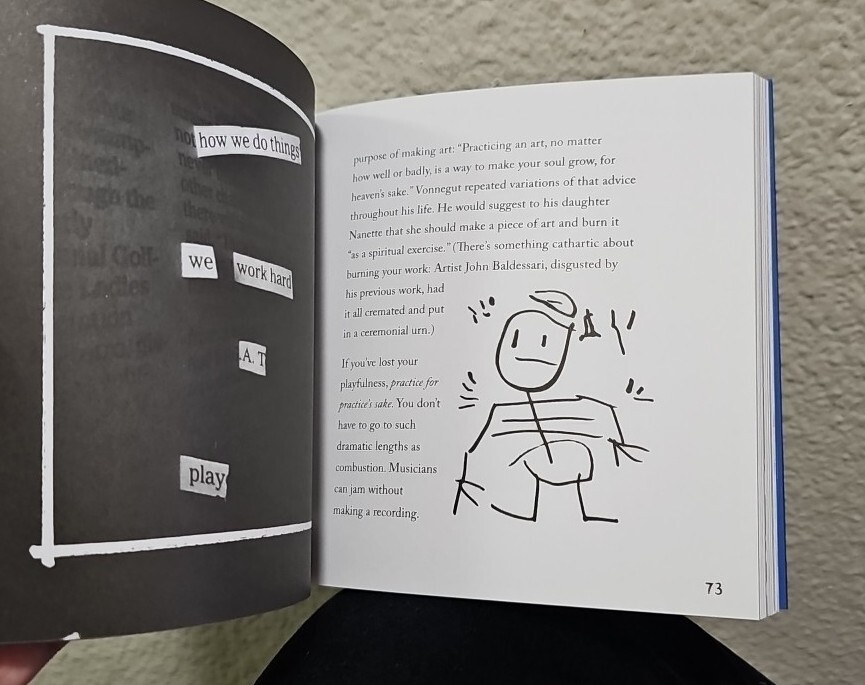 how we do things
we work hard
.A. T
play
purpose of making art: “Practicing an art, no matter
how well or badly, is a way to make your soul grow, for
heaven’s sake.” Vonnegut repeated variations of that advice
throughout his life. He would suggest to his daughter
Nanette that she should make a piece of art and burn it
“as a spiritual exercise.” (There’s something cathartic about
burning your work: Artist John Baldessari, disgusted by
his previous work, had
it all cremated and put
in a ceremonial urn.)
If you’ve lost your
playfulness, practice for
practice’s sake. You don’t
have to go to such
dramatic lengths as
combustion. Musicians
can jam without
making a recording.
73